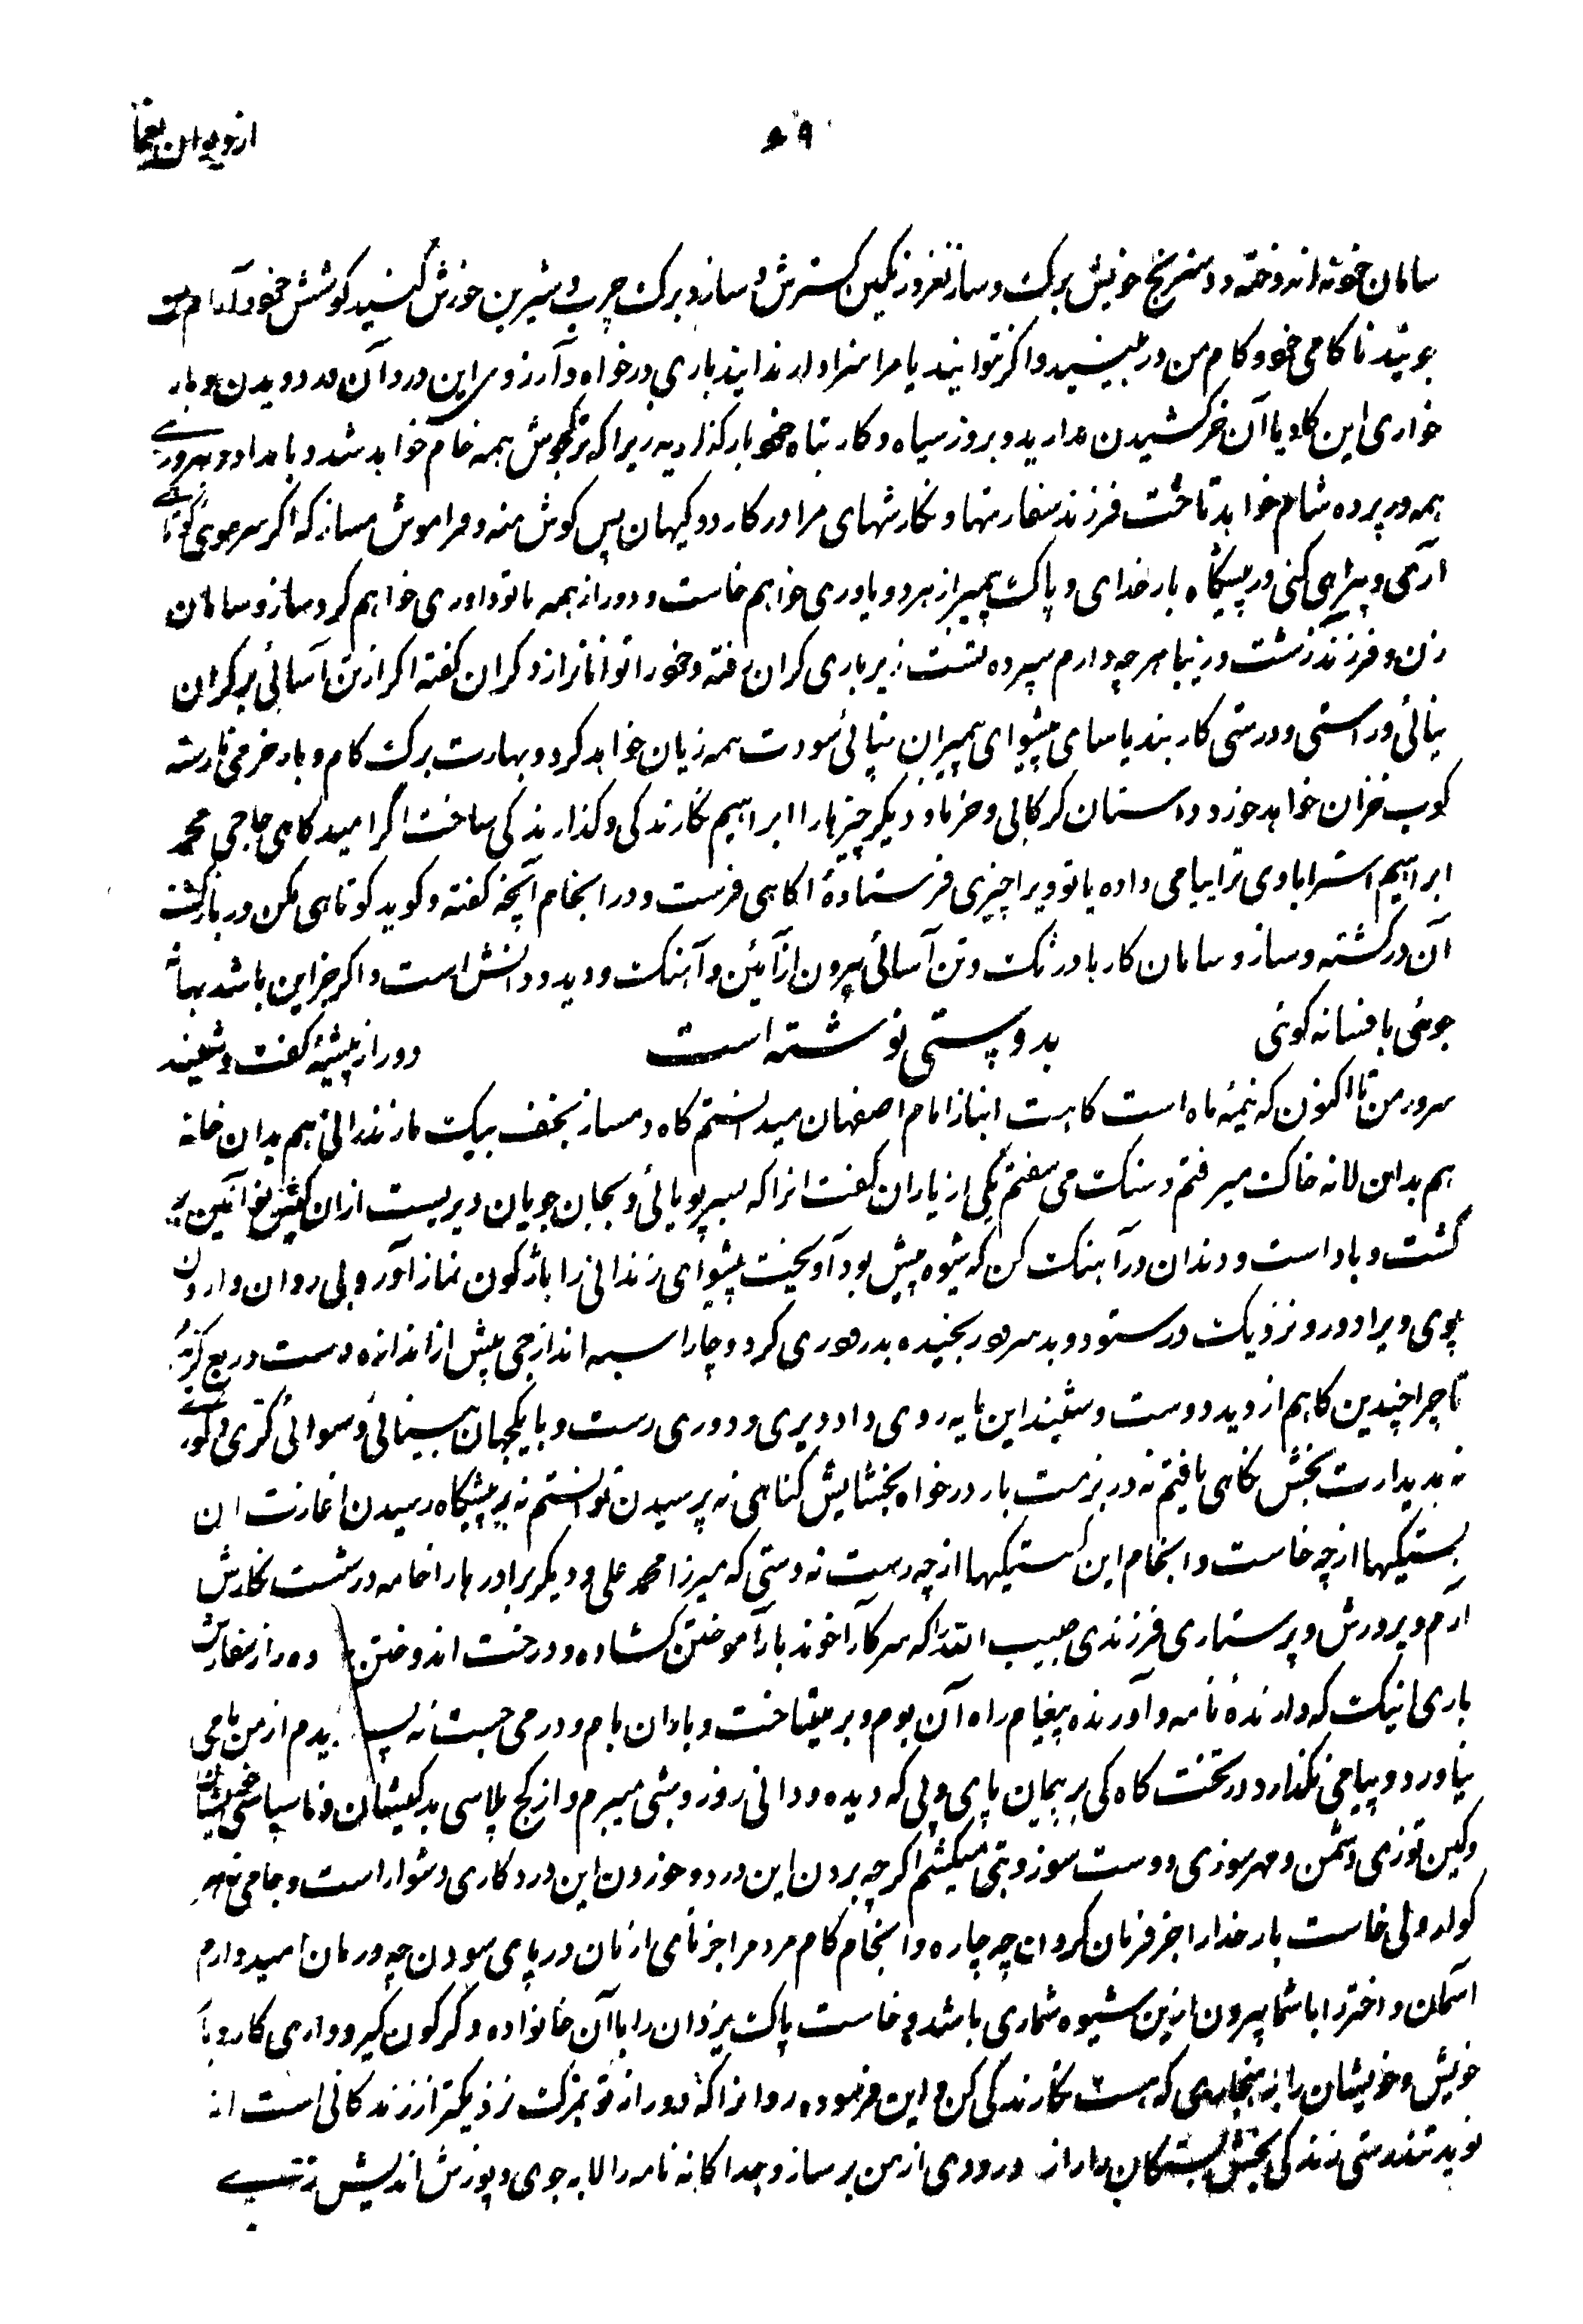 ۵۹
از دیوان یغما
سامان خوشه اندوخته و دسترنج خویش برک و ساز نغز و رنگین گسترش و ساز و برک چرب و شیرین خورش کنید کوشش خود آرام من
جوئید ناکامی خود و کام من در بینید و اگر نتوانید یا مرا سزاوار ندانید باری درخواه و آرزوی این در و آن در دویدن و بار
خواری این کاو یا آن خر کشیدن مدارید و بروز سیاه و کار تباه خود بازگذارید زیرا که همه خام خواهد شد و بامداد
همه در پرده شام خواهد تاخت فرزند سفارشها و نگارشهای مرا در کار دو کیهان پس کوش منه و فراموش مساز که اگر سر موئی
آری و بیراهی کنی در پیشگاه بار خدای و پاک پیمبر از هر دو یاوری خواهم خاست و دور از همه با تو داوری خواهم کرد ساز و سامان
زن و فرزند زشت و زیبا هر چه دارم سپرده تست زیر باری کران رفته و خود را توانا تر از دگران گفته اگر از تن آسائی بر کران
نیائی و راستی و درستی کار بند یاسای پیشوای پیمبران نیائی سودت همه زیان خواهد کرد و بهارت برک کام و بار خرمی نارسته
کوب خزان خواهد خورد داستان و دیگر چیزها را ابراهیم نگارندگی و گذارندگی ساخت اگر امیدگاهی حاجی محمد
ابراهیم استرابادی ترا پیامی داده یا تو ویرا چیزی فرستاده آگاهی فرست و در انجام آنچه گفته و گوید کوتاهی مکن در بازگشت
آن در گشته و ساز و سامان کار با درنگ و تن آسائی بیرون از آئین و آهنگ و دید و دانش است و اگر جز این باشد بهانه
جوئی یا فسانه گوئی
بدوستی نوشته است
دور از پیشه گفت و شنید
سرور من تا اکنون که نیمه ماه است گاهت انباز امام اصفهان میدانستم گاه دمساز نجف بیک مازندرانی هم بدان خانه
هم بدان لانه خاک میرفتم و سنگ می سفتم یکی از یاران گفت انرا که بسر پویائی و بجان جویان دیریست از آن کیش نو آئین بر
گشت و باد است و دندان در آهنگ کن که شیوه پیش بود آویخت پیشوای زندانی را باژگون نماز آور و پی روان وارون
پوی ویرا دور و نزدیک در ستود و بد سرود رنجیده بدرودی کرد و چار اسبه انداز حی بیش از اندازه دست
تا چرا چندین گاهم از دید دوست و شنید این مایه روی داد دیری و دوری رست و با یکجهان بینائی و شنوائی کری و کوری
نه بدیدارت بخش نگاهی یافتم نه در بزمت بار درخواه بخشایش گناهی نه پرسیدن توانستم نه بر پیشگاه رسیدن اغازت این
بستگیها از چه خاست و انجام این گسستگیها از چه رست نه دستی که میرزا محمد علی و دیگر برادرها را خامه در شست نگارش
آرم و پرورش و پرستاری فرزندی حبیب الله را که سرکار آخوند بار آموختن گشاده و در خت اندوختن وه راز سفارش
باری انیک که دارنده نامه و آورنده پیغام راه آن بوم و بر میشناخت و بادان بام و در می جست نه پسندیدم از من نامی
نیاورد و پیامی نگذارد در تخت گاه کی بر پیمان پای ولی که دیده و دانی روز و شبی میبرم و از کج پلاسی بدکیشان و ناسپاسی خویشان
و کین توزی دشمن و مهر سوزی دوست سوز و تبی میکشم اگر چه بردن این درد و خوردن این درد کاری دشوار است و جامی
گوارا ولی خاست بار خدا را جز فرمان کردن چه چاره و انجام کام مردم را جز نامی از نان در پای سودن چه درمان امیدوارم
آسمان و اختر را با شما بیرون ازین شیوه شماری باشد و خاست پاک یزدان را با آن خانواده دگرگون گیر و داری کار و بار
خویش و خویشان را به هنجاری که هست نگارندگی کن و این فرسوده روانرا که دور از تو بمرگ نزدیکتر از زندگانی است از
نوید تندرستی زندگی بخش بستگان را از درودی از من برساز و جداگانه نامه را لابه جوی و پوزش اندیش